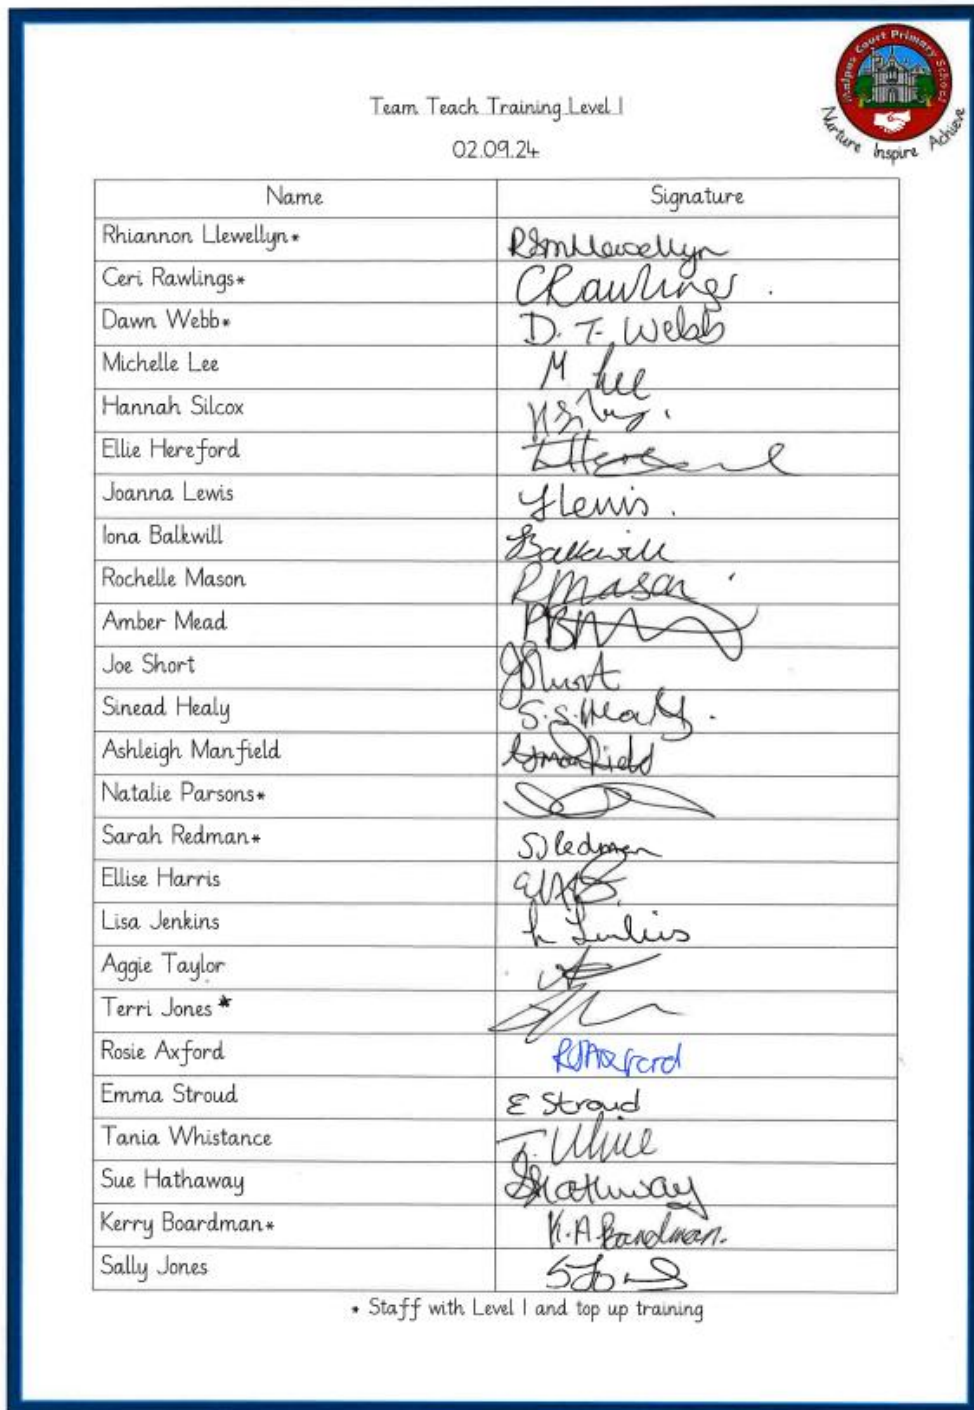 Malpas Court Primary School
Nurture Inspire Achieve
Team Teach Training Level 1
02.09.24
Name Signature
Rhiannon Llewellyn* RSMLlewellyn
Ceri Rawlings* CRawlings.
Dawn Webb* D. T. Webb
Michelle Lee M Lee
Hannah Silcox
Ellie Hereford
Joanna Lewis JLewis.
Iona Balkwill IBalkwill
Rochelle Mason RMason
Amber Mead
Joe Short JShort
Sinead Healy S.S.Healy.
Ashleigh Manfield AManfield
Natalie Parsons*
Sarah Redman* SJRedman
Ellise Harris
Lisa Jenkins L Jenkins
Aggie Taylor
Terri Jones*
Rosie Axford RJAxford
Emma Stroud E Stroud
Tania Whistance
Sue Hathaway SHathaway
Kerry Boardman* K.A.Boardman.
Sally Jones
* Staff with Level 1 and top up training